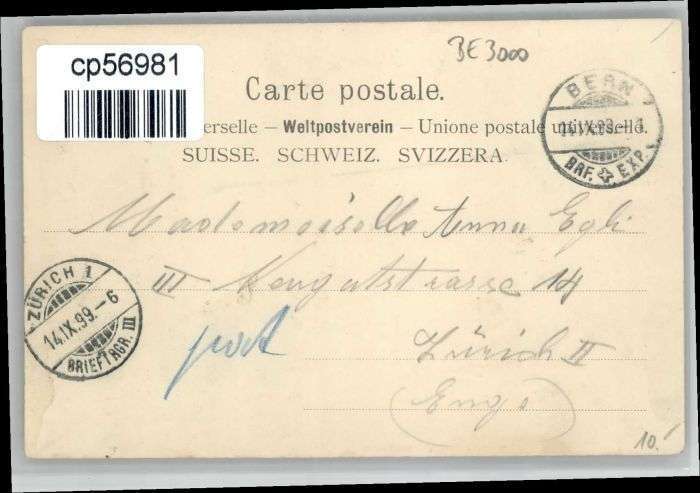 BE3000
cp56981
Carte postale.
erselle – Weltpostverein – Unione postale universelle.
SUISSE. SCHWEIZ. SVIZZERA.
BERN 1
14.IX.99.–1
BRF. EXP.
Mademoiselle Anna Egli
III 14
Zürich II
(Enge)
ZÜRICH 1
14.IX.99.–6
BRIEFTRGR. III
10.